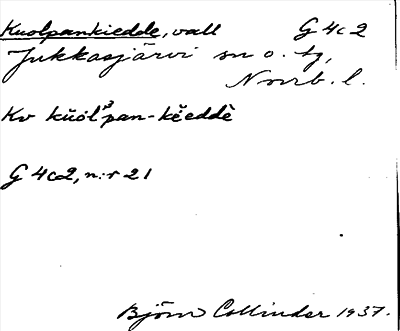 Kuolpankiedde, vall G 4c2
Jukkasjärvi sn o. tg,
Norrb. l.
Kv kŭòl³pan-kĕeddè
G 4c2, n:r 21
Björn Collinder 1937.